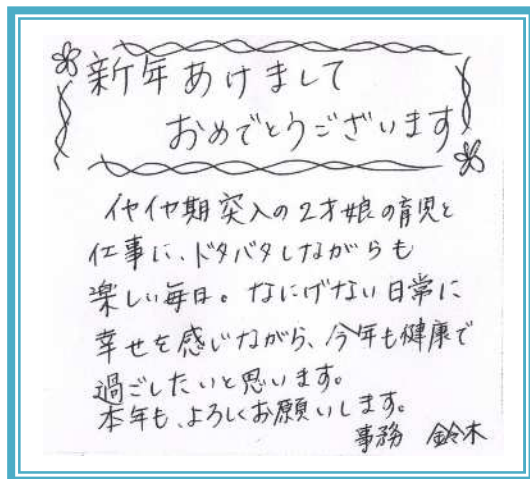 新年あけまして
おめでとうございます
イヤイヤ期突入の2才娘の育児と
仕事に、ドタバタしながらも
楽しい毎日。なにげない日常に
幸せを感じながら、今年も健康で
過ごしたいと思います。
本年も、よろしくお願いします。
事務 鈴木